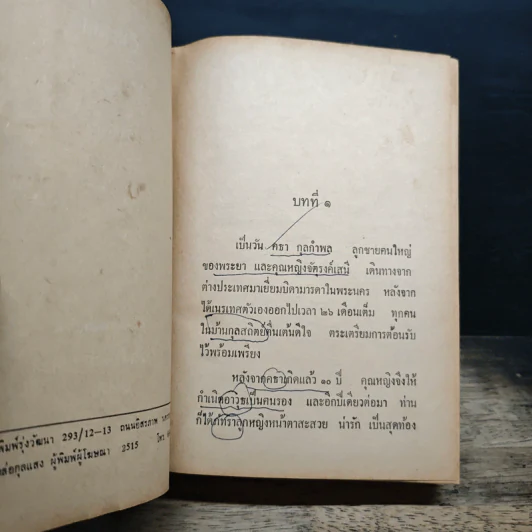 พิมพ์รุ่งวัฒนา 293/12—13 ถนนอิสรภาพ
ล่อกุลแสง ผู้พิมพ์ผู้โฆษณา 2515 โทร
บทที่ ๑
เป็นวัน คธา กุลกำพล ลูกชายคนใหญ่
ของพระยา และคุณหญิงจัตรงค์เสนี เดินทางจาก
ต่างประเทศมาเยี่ยมบิดามารดาในพระนคร หลังจาก
ได้เนรเทศตัวเองออกไปเวลา ๒๖ เดือนเต็ม ทุกคน
ในบ้านกุลสถิตย์ตื่นเต้นดีใจ ตระเตรียมการต้อนรับ
ไว้พร้อมเพรียง
หลังจากคธาเกิดแล้ว ๑๐ ปี คุณหญิงจึงให้
กำเนิดอาวุธเป็นคนรอง และอีกปีเดียวต่อมา ท่าน
ก็ได้ภัทราลูกหญิงหน้าตาสะสวย น่ารัก เป็นสุดท้อง